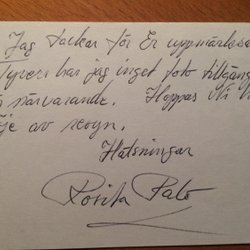 Jag tackar för Er uppmärksa
Tyvärr har jag inget foto tillgäng
närvarande. Hoppas Ni
je av revyn.
Hälsningar
Rosita Palo